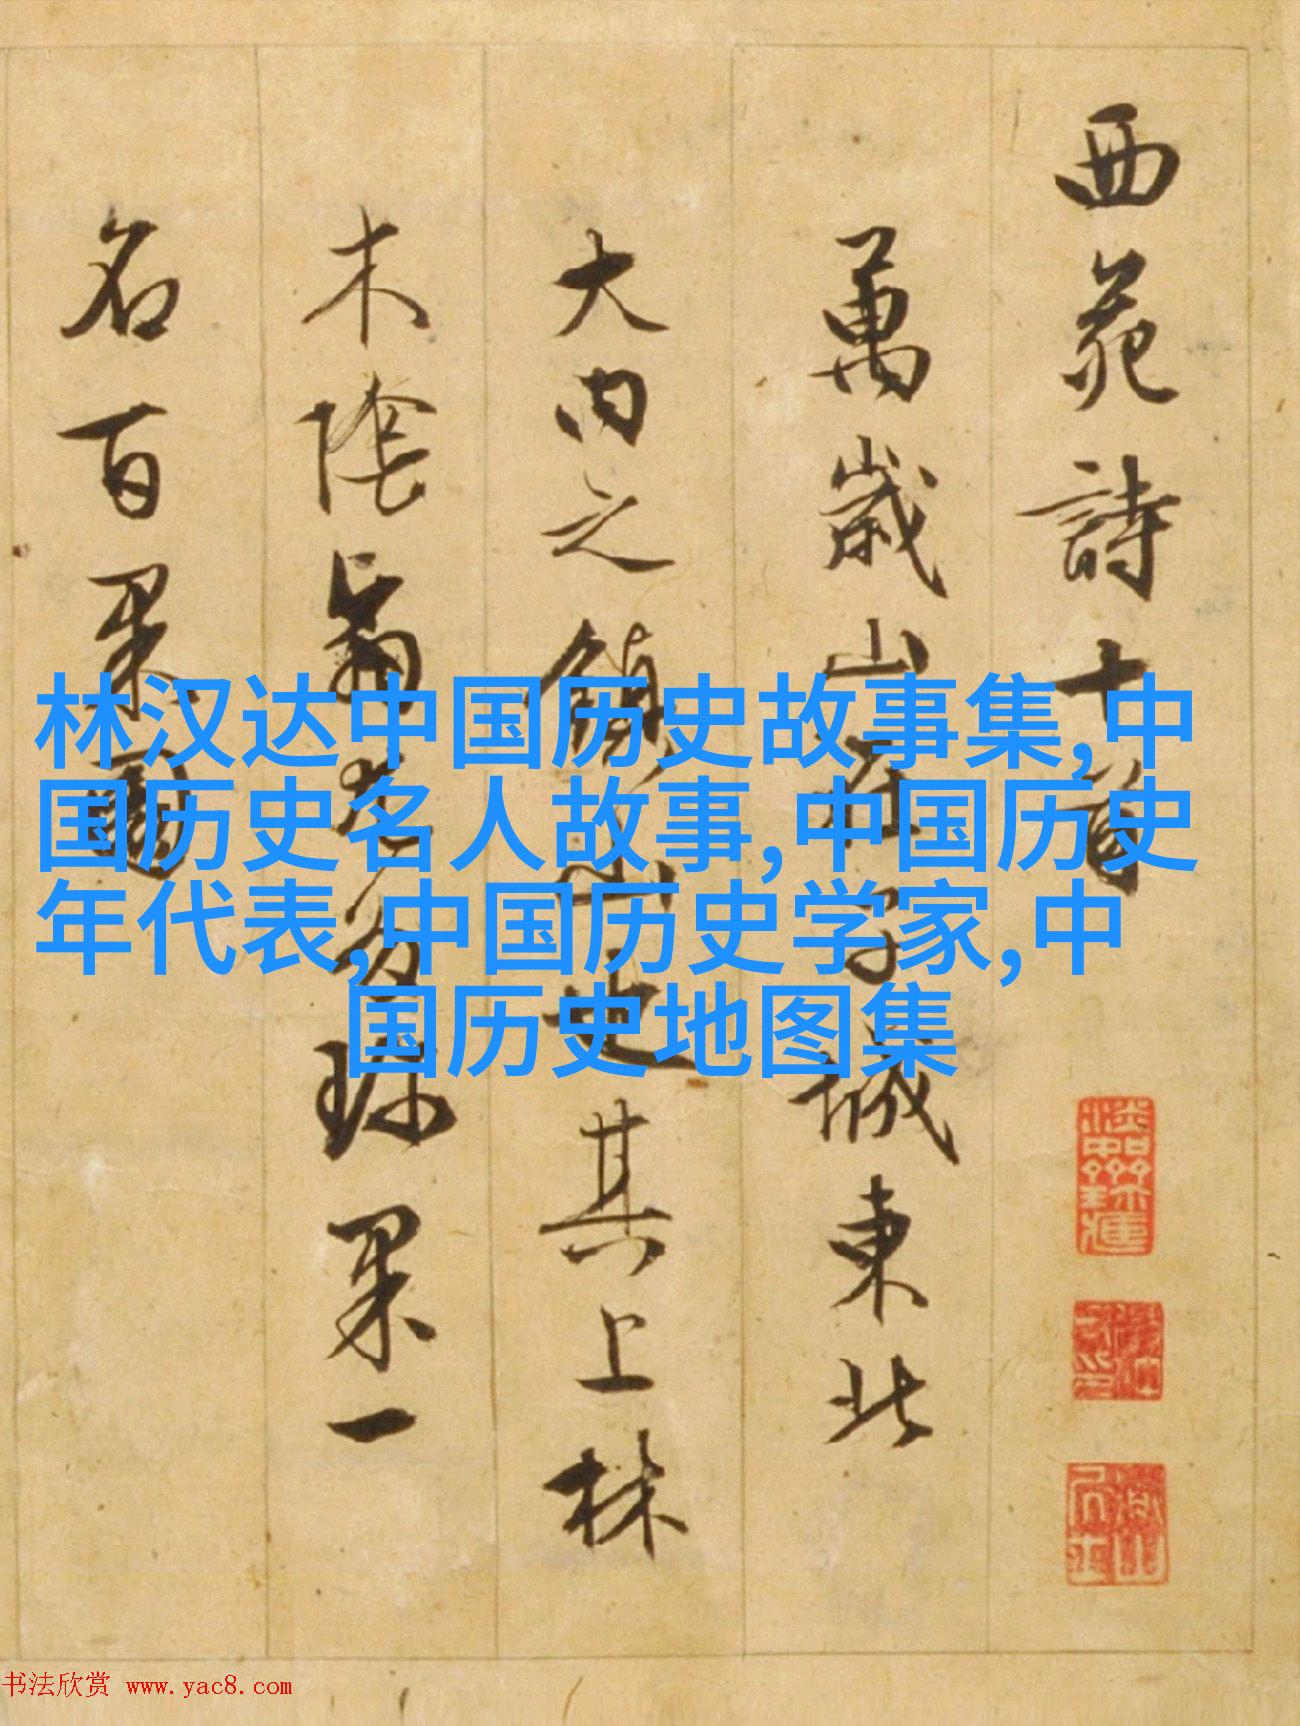 西苑詩十首
萬歲山在子城東北
大内之鎮山也其上林
木陰翳尤多珍果一
名百果園
林汉达中国历史故事集,中
国历史名人故事,中国历史
年代表,中国历史学家,中
国历史地图集
书法欣赏 www.yac8.com